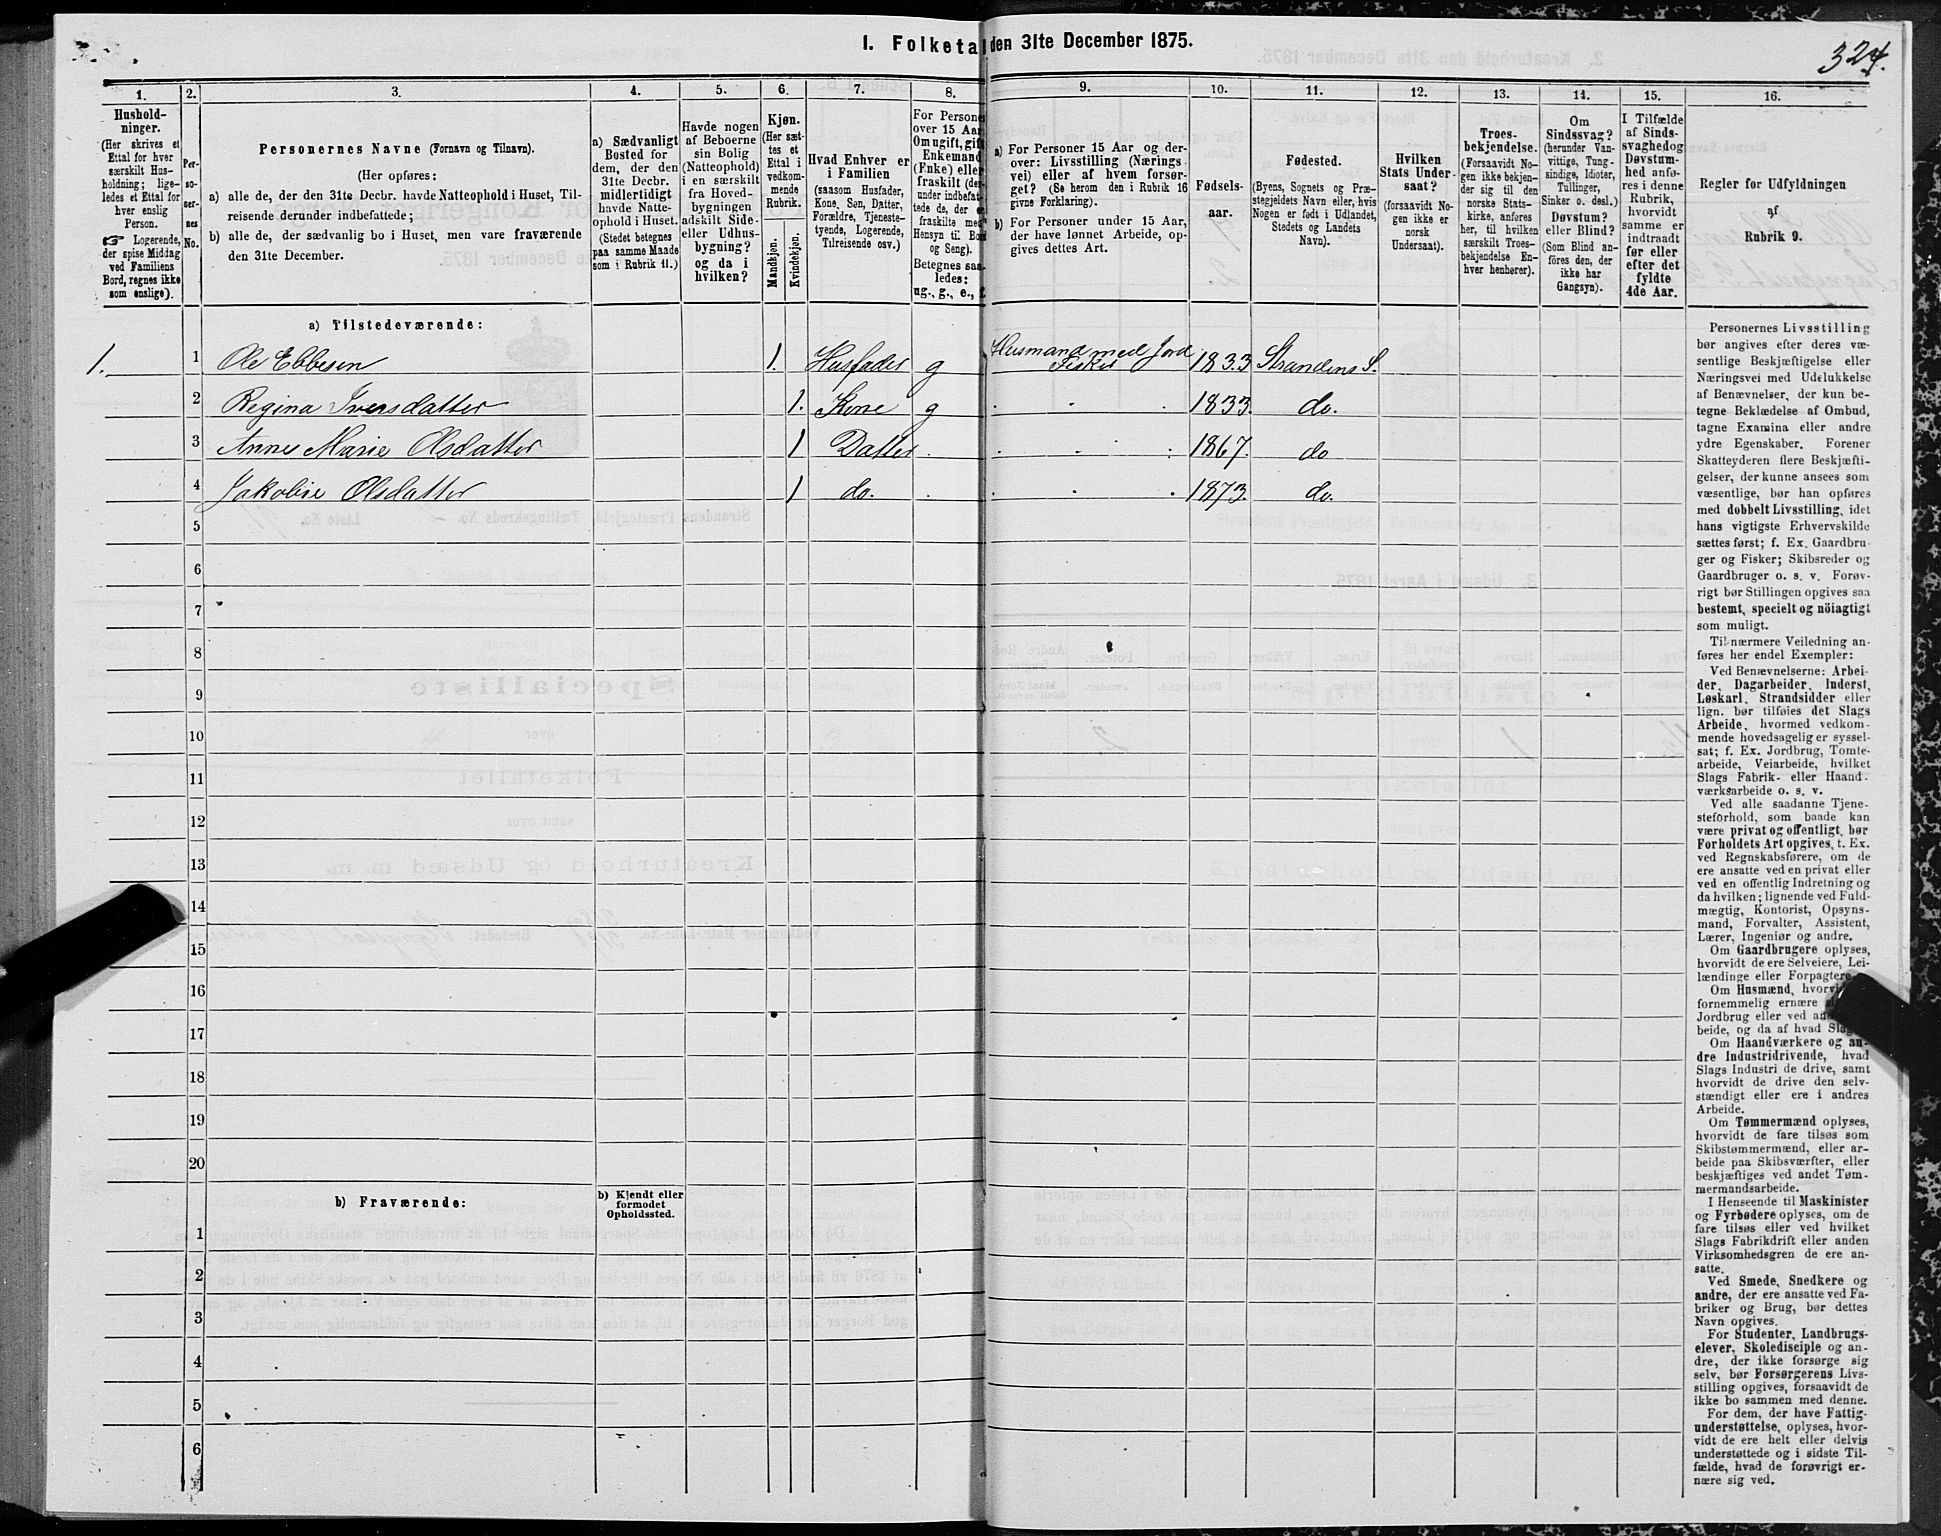 I. Folketal den 31te December 1875.
324.
1.
2.
3.
4.
5.
6.
7.
8.
9.
10.
11.
12.
13.
14.
15.
16.
Hushold-
ninger.
(Her skrives et
Ettal for hver
særskilt Hus-
holdning; lige-
ledes et Ettal for
hver enslig
Person.
Logerende,
der spise Middag
ved Familiens
Bord, regnes ikke
som enslige).
Per-
so-
ner-
nes
No.
Personernes Navne (Fornavn og Tilnavn).
(Her opføres:
a) alle de, der den 31te Decbr. havde Natteophold i Huset, Til-
reisende derunder indbefattede;
b) alle de, der sædvanlig bo i Huset, men vare fraværende
den 31te December.
a) Sædvanligt
Bosted for
dem, der den
31te Decbr.
midlertidigt
havde Natte-
ophold i Huset.
(Stedet betegnes
paa samme Maade
som i Rubrik 11.)
Havde nogen
af Beboerne
sin Bolig
(Natteophold)
i en særskilt
fra Hoved-
bygningen
adskilt Side-
eller Udhus-
bygning?
og da i
hvilken?
Kjøn.
(Her sæt-
tes et
Ettal i
vedkom-
mende
Rubrik.
Mandkjøn.
Kvindekjøn.
Hvad Enhver er
i Familien
(saasom Husfader,
Kone, Søn, Datter,
Forældre, Tjeneste-
tyende, Logerende,
Tilreisende osv.)
For Persone
over 15 Aar
Om ugift, gift
Enkemand
(Enke) eller
fraskilt (der
under indbefat-
tede de, der e
fraskilte med
Hensyn til Bo
og Seng).
Betegnes saa-
ledes:
ug., g., e., f
a) For Personer 15 Aar og der-
over: Livsstilling (Nærings
vei) eller af hvem forsør-
get? (Se herom den i Rubrik 16
givne Forklaring).
b) For Personer under 15 Aar,
der have lønnet Arbeide, op-
gives dettes Art.
Fødsels-
aar.
Fødested.
(Byens, Sognets og Præ-
stegjeldets Navn eller, hvis
Nogen er født i Udlandet,
Stedets og Landets
Navn).
Hvilken
Stats Under-
saat?
(forsaavidt No-
gen ikke er
norsk
Undersaat).
Troes-
bekjendelse.
(Forsaavidt No-
gen ikke bekjen-
der sig til den
norske Stats-
kirke, anføres
her, til hvilken
særskilt Troes-
bekjendelse En-
hver henhører).
Om
Sindssvag?
(herunder Van-
vittige, Tung-
sindige, Idioter,
Tullinger,
Sinker o. desl.)
Døvstum?
eller Blind?
(Som Blind an-
føres den, der
ikke har
Gangsyn).
I Tilfælde
af Sinds-
svaghedog
Døvstum-
hed anfø-
res i denne
Rubrik,
hvorvidt
samme er
indtraadt
før eller
efter det
fyldte
4de Aar.
Regler for Udfyldningen
af
Rubrik 9.
a) Tilstedeværende:
1. 1 Ole Ebbesen 1. Husfader g Husmand med Jord Fisker 1833 Strandens S.
2 Regina Iversdatter 1. Kone g 1833. do.
3 Anne Marie Olsdatter 1 Datter 1867. do
4 Jakobie Olsdatter 1 do. 1873. do.
5
6
7
8
9
10
11
12
13
14
15
16
17
18
19
20
b) Fraværende:
b) Kjendt eller
formodet
Opholdssted.
1
2
3
4
5
6
Personernes Livsstilling
bør angives efter deres væ-
sentlige Beskjæftigelse eller
Næringsvei med Udelukkelse
af Benævnelser, der kun be-
tegne Beklædelse af Ombud,
tagne Examina eller andre
ydre Egenskaber. Forener
Skatteyderen flere Beskjæfti-
gelser, der kunne ansees som
væsentlige, bør han opføres
med dobbelt Livsstilling, idet
hans vigtigste Erhvervskilde
sættes først; f. Ex. Gaardbru-
ger og Fisker; Skibsreder og
Gaardbruger o. s. v. Forøv-
rigt bør Stillingen opgives saa
bestemt, specielt og nöiagtigt
som muligt.
Til nærmere Veiledning an-
føres her endel Exempler:
Ved Benævnelserne: Arbei-
der, Dagarbeider, Inderst,
Løskarl, Strandsidder eller
lign. bør tilføies det Slags
Arbeide, hvormed vedkom-
mende hovedsagelig er syssel-
sat; f. Ex. Jordbrug, Tomte-
arbeide, Veiarbeide, hvilket
Slags Fabrik- eller Haand-
værksarbeide o. s. v.
Ved alle saadanne Tjene-
steforhold, som baade kan
være privat og offentligt, bør
Forholdets Art opgives, t. Ex.
ved Regnskabsførere, om de
ere ansatte ved en privat eller
ved en offentlig Indretning og
da hvilken; lignende ved Fuld-
mægtig, Kontorist, Opsyns-
mand, Forvalter, Assistent,
Lærer, Ingeniør og andre.
Om Gaardbrugere oplyses,
hvorvidt de ere Selveiere, Lei-
lændinge eller Forpagtere
Om Husmænd, hvorvi
fornemmelig ernære
Jordbrug eller ved an
beide, og da af hvad Slag
Om Haandværkere og an-
dre Industridrivende, hvad
Slags Industri de drive, samt
hvorvidt de drive den selv-
stændigt eller ere i andres
Arbeide.
Om Tømmermænd oplyses,
hvorvidt de fare tilsøs som
Skibstømmermænd, eller ar-
beide paa Skibsværfter, eller
beskjæftiges ved andet Tøm-
mermandsarbeide.
I Henseende til Maskinister
og Fyrbødere oplyses, om de
fare tilsøs eller ved hvilket
Slags Fabrikdrift eller anden
Virksomhedsgren de ere an-
satte.
Ved Smede, Snedkere og
andre, der ere ansatte ved Fa-
briker og Brug, bør dettes
Navn opgives.
For Studenter, Landbrugs-
elever, Skoledisciple og an-
dre, der ikke forsørge sig
selv, bør Forsørgerens Livs-
stilling opgives, forsaavidt de
ikke bo sammen med denne.
For dem, der have Fattig-
understøttelse, oplyses, hvor-
vidt de ere helt eller delvis
understøttede og i sidste Til-
fælde, hvad de forøvrigt er-
nære sig ved.